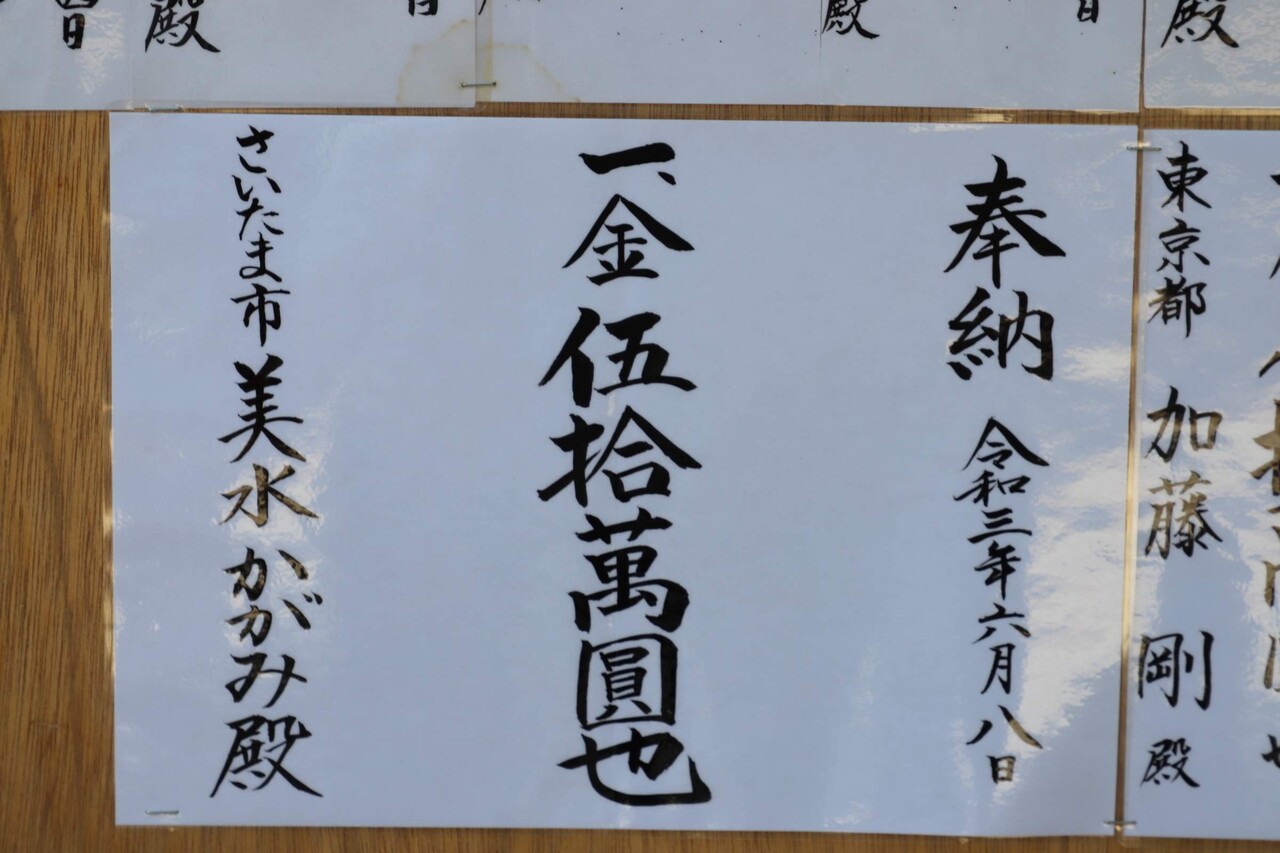 東京都 加藤 剛 殿
奉納 令和三年六月八日
一、金伍拾萬圓也
さいたま市 美水かがみ殿
殿
日
殿
日
殿
日